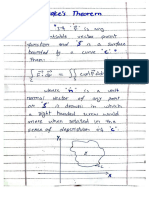 Stoke's Theorem
"If 'F' is any
differentiable vector point
function and 'S' is a surface
bounded by a curve 'c'"
Then:
∫c F·dr = ∬s curl F·n̂ ds
where 'n̂' is a unit
normal vector at any point
of S is drawn in which
a right handed screw would
move when rotated in the
sense of 'c'
Z
S
c
Y
X